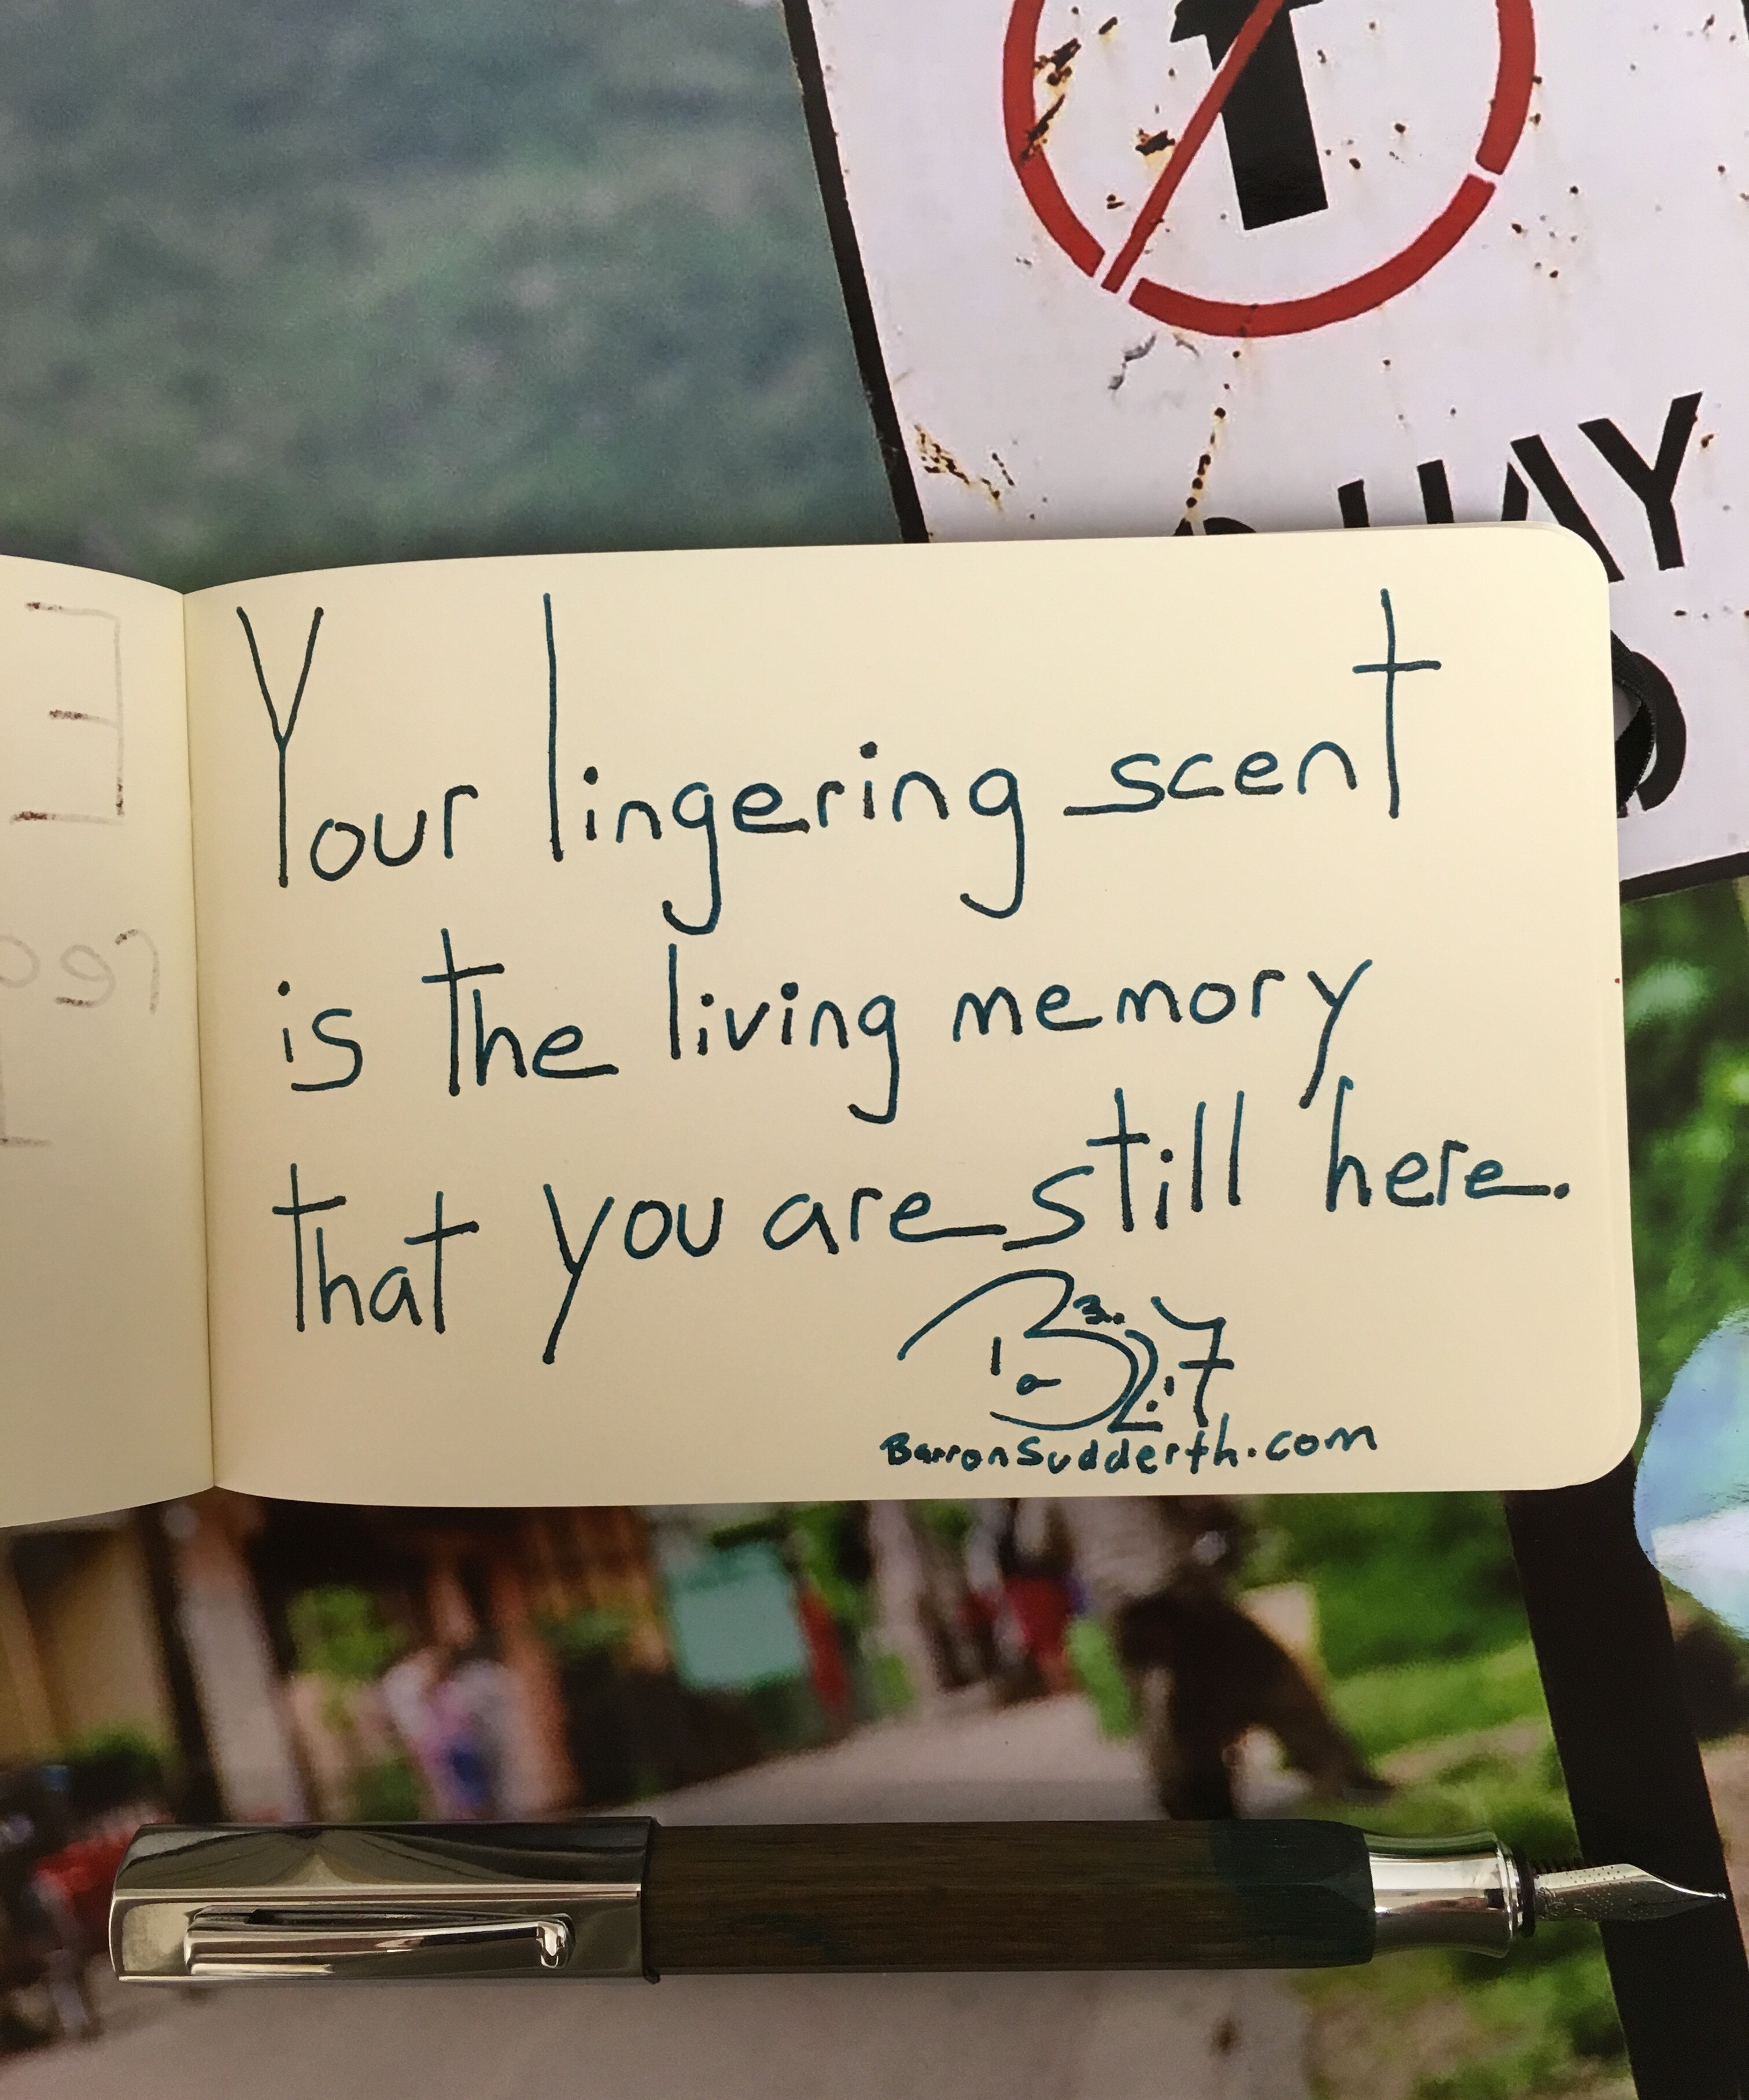 HAY
Your lingering scent
is the living memory
that you are still here.
BarronSudderth.com